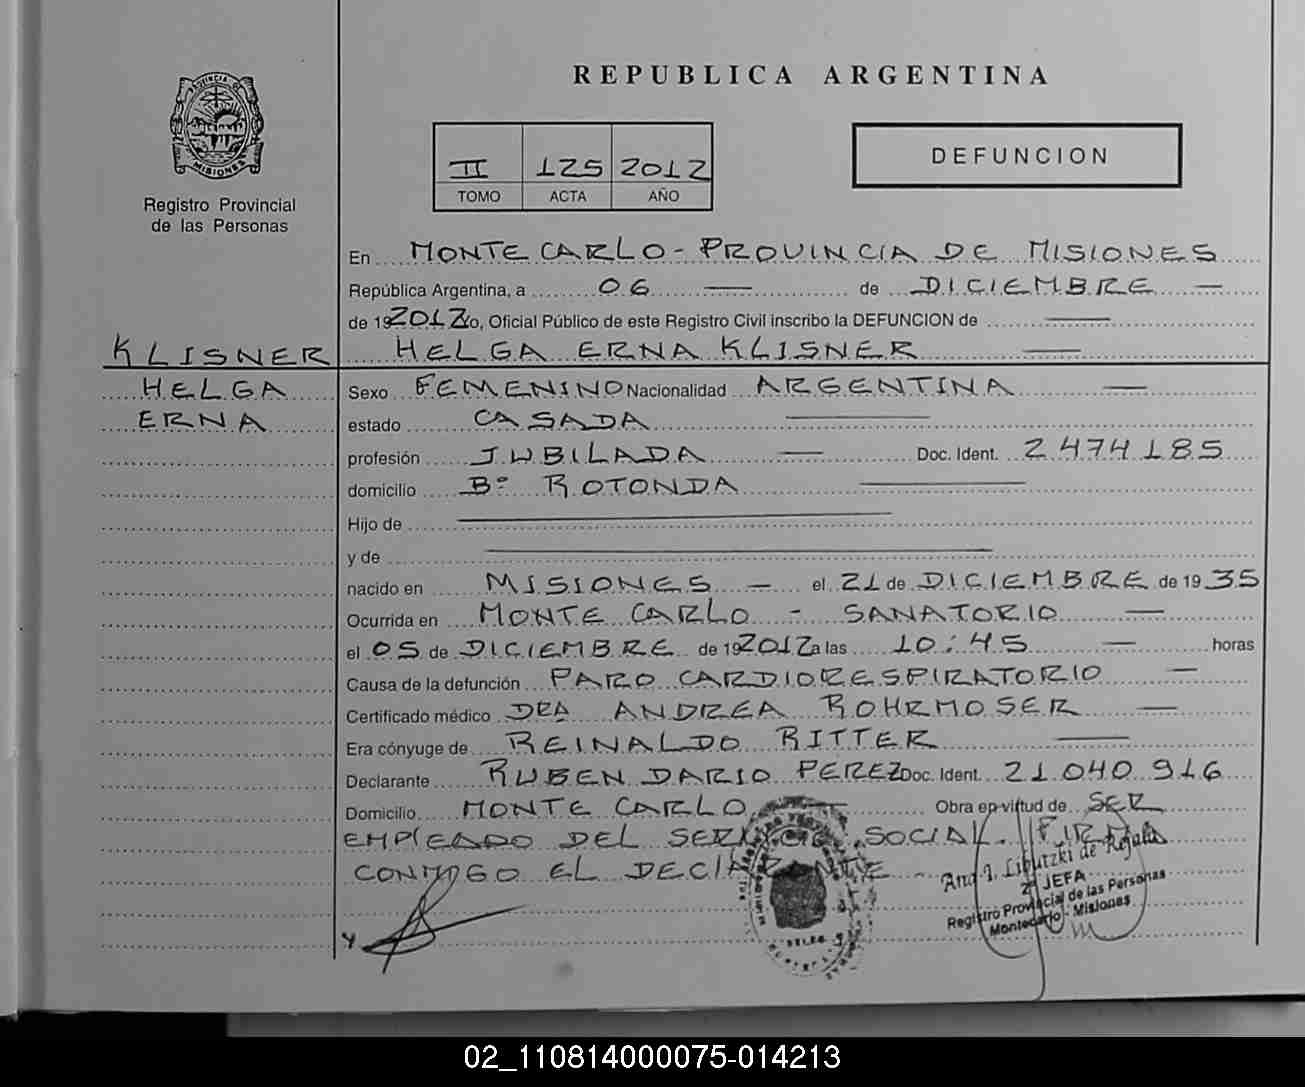 REPUBLICA ARGENTINA
PROVINCIA DE
MISIONES
Registro Provincial
de las Personas
II 125 2012
TOMO ACTA AÑO
DEFUNCION
En MONTE CARLO - PROVINCIA DE MISIONES
República Argentina, a 06 — de DICIEMBRE —
de 192012 Yo, Oficial Público de este Registro Civil inscribo la DEFUNCION de —
KLISNER
HELGA
ERNA
HELGA ERNA KLISNER —
Sexo FEMENINO Nacionalidad ARGENTINA —
estado CASADA —
profesión JUBILADA — Doc. Ident. 2474185
domicilio Bº ROTONDA —
Hijo de —
y de —
nacido en MISIONES — el 21 de DICIEMBRE de 1935
Ocurrida en MONTE CARLO - SANATORIO —
el 05 de DICIEMBRE de 192012 a las 10:45 — horas
Causa de la defunción PARO CARDIORESPIRATORIO —
Certificado médico DRA ANDREA ROHRMOSER —
Era cónyuge de REINALDO RITTER —
Declarante RUBEN DARIO PEREZ Doc. Ident. 21040916
Domicilio MONTE CARLO — Obra en virtud de SER
EMPLEADO DEL SERVICIO SOCIAL. FIRMA
CONMIGO EL DECLARANTE -
Ana I. Libutzki de
2ª JEFA
Registro Provincial de las Personas
Montecarlo - Misiones
02_110814000075-014213